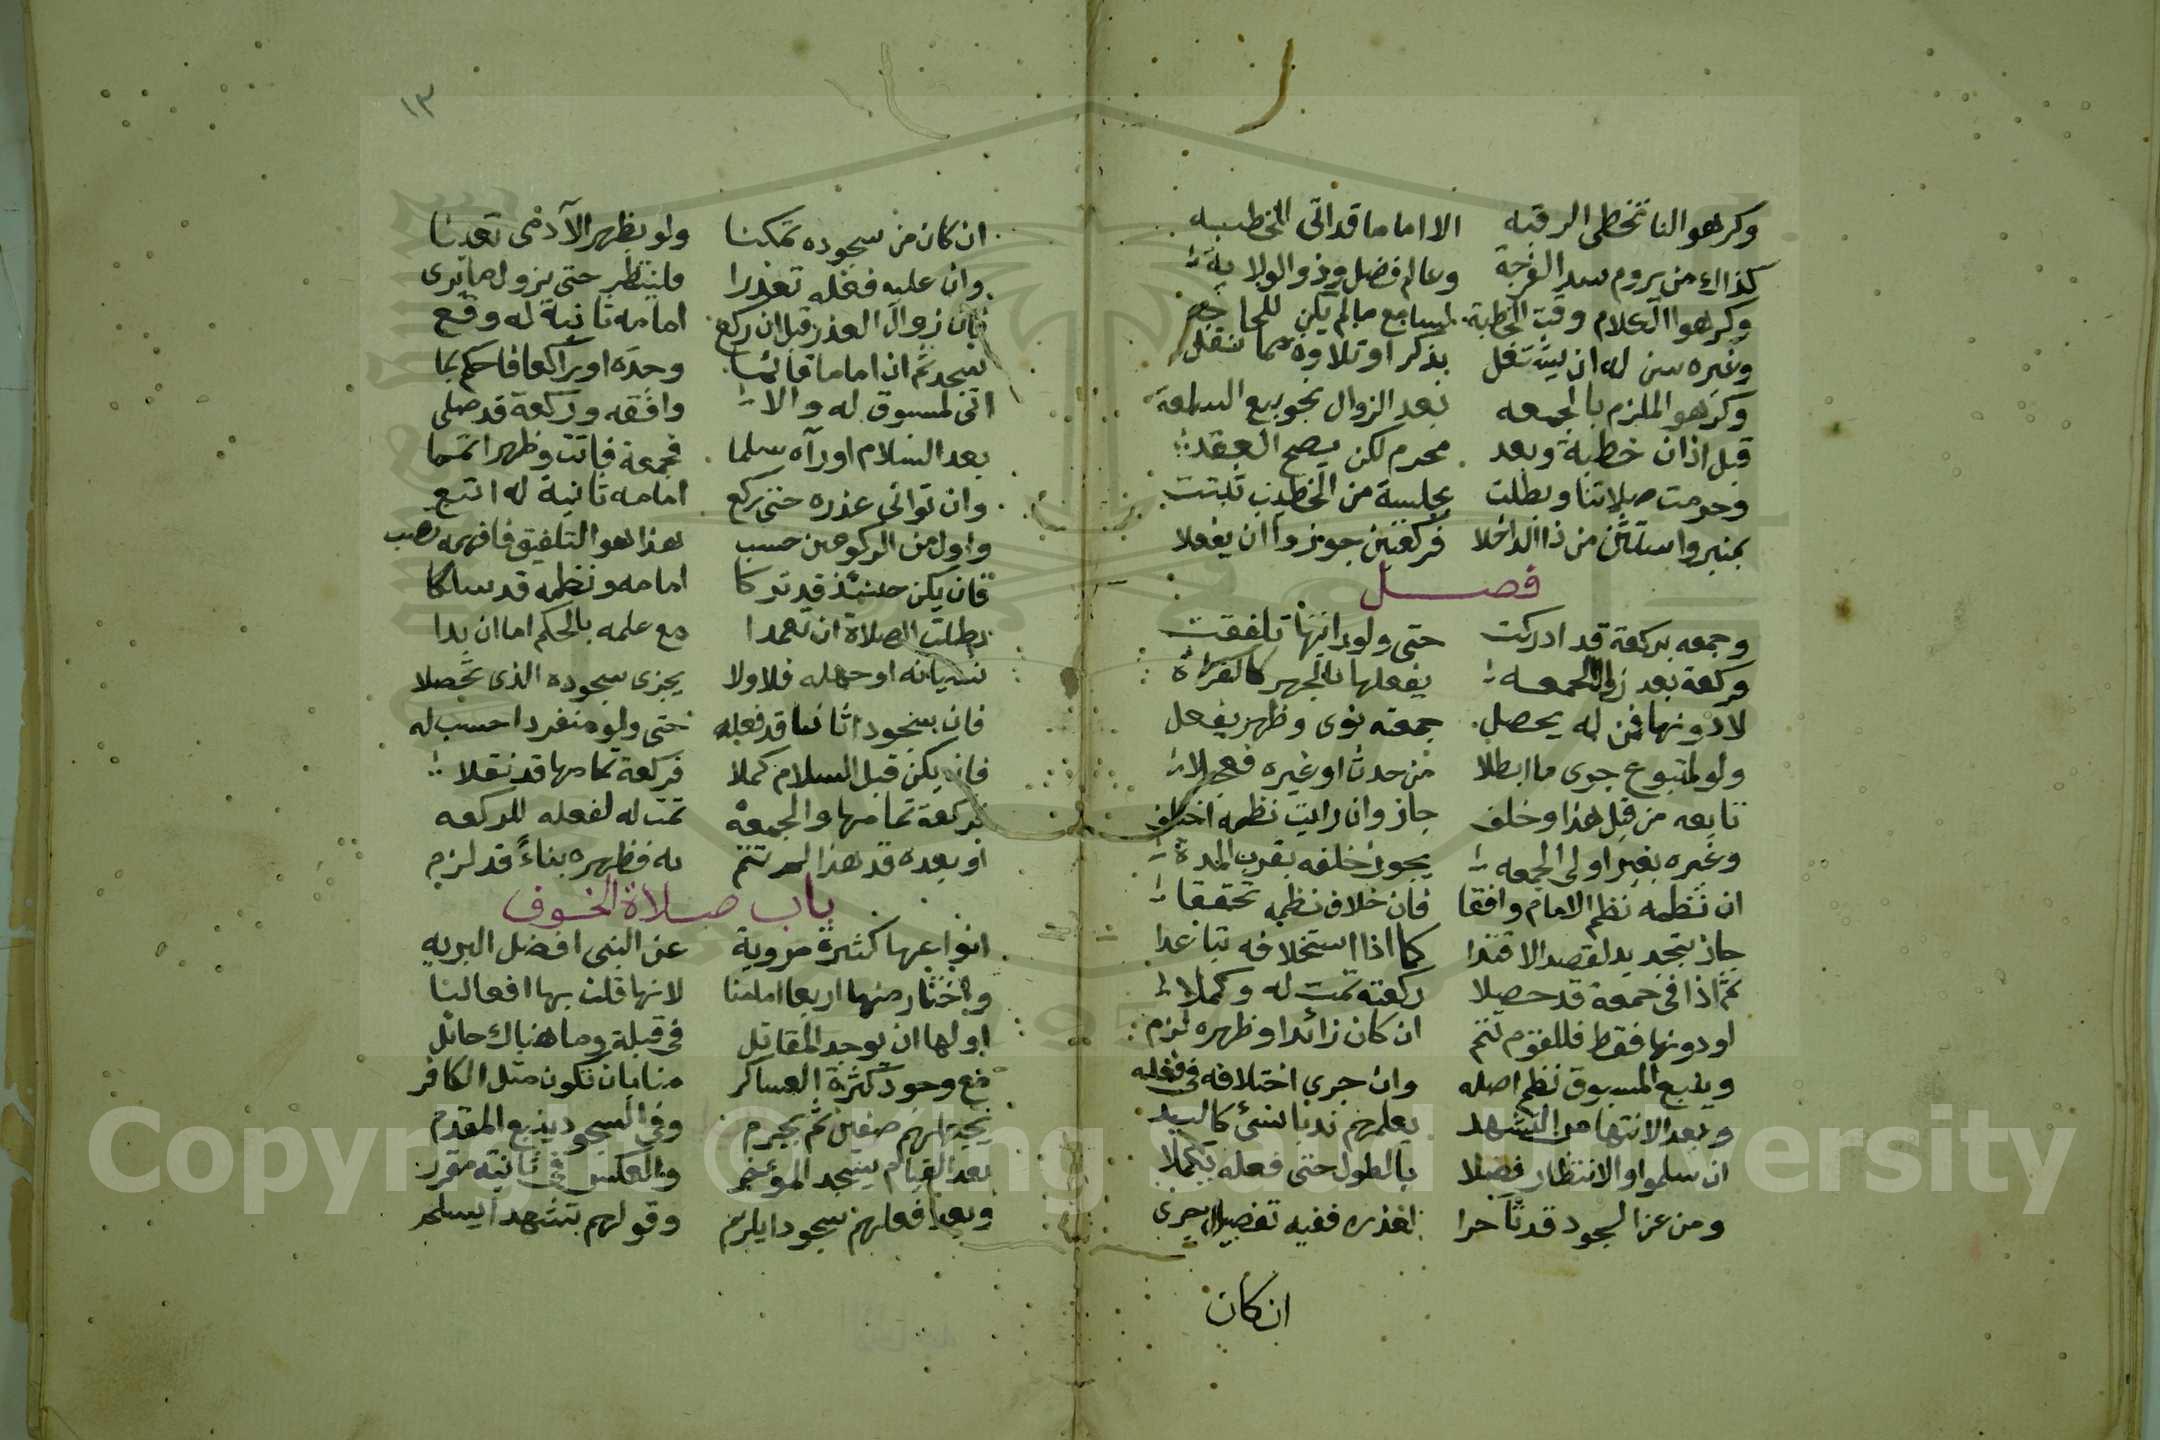 وكرهوا لنا تخطي الرقبه الا اماما قد اتى للخطبه
كذاك من يروم سد الفرجة وعالم فضل وذو الولاية
وكرهوا الكلام وقت الخطبة لسامع ما لم يكن للحاجة
وغيره سن له ان يشتغل بذكر او تلاوة مما نقل
وكرهوا الملزم بالجمعه بعد الزوال نحو بيع السلعة
قبل اذان خطبة وبعد محرم لكن يصح العقد
وحرمت صلاتنا وبطلت بجلسة من الخطيب تثبت
بمنبر واستثن من ذا الداخلا فركعتين جوزوا ان يفعلا
فصل
وجمعه بركعة قد ادركت حتى ولو رايتها تلفقت
فركعة بعد زوال الجمعه يفعلها بالجهر كالقراة
لا دونها فمن له يحصل جمعته نوى وظهر يفعل
ولو لمتبوع جرى ما ابطلا من حدث او غيره فعجلا
تابعه من قبل هذا وخلف جاز وان رايت نظمه اختلف
وغيره بغير اولى الجمعه يجوز خلفه بقرب المدة
ان نظمه نظم الامام وافقا فان خلاف نظمه تحققا
جاز بتجديد لقصد الاقتدا كما اذا استخلافه تباعدا
ثم اذا في جمعة قد حصلا ركعته تمت له وكملا
او دونها فقط فللقوم تتم ان كان زائدا وظهره لزم
ويتبع المسبوق نظم اصله وان جرى اختلافه في فعله
وبعد الانتها من التشهد يعلمهم ندبا بشئ كاليد
ان سلموا والانتظار فضلا بالطول حتى فعله يكملا
ومن عن السجود قد تاخرا لعذره ففيه تفصيل جرى
ان كان
١٣
ان كان من سجوده تمكنا ولو بظهر الآدمي تعينا
وان عليه فعله تعذرا فلينتظر حتى يزول ما يرى
فان زوال العذر قبل ان ركع امامه ثانية له وقع
يسجد ثم ان اماما قائما وجده او راكعا فاحكم بما
اتى لمسبوق له والا وافقه وركعة قد صلى
بعد السلام او رآه سلما فجمعة فاتت وظهرا تمما
وان توالى عذره حتى ركع امامه ثانية له اتبع
واول من الركوعين حسب هذا هو التلفيق فافهمه تصب
فان يكن حينئذ قد تركا امامه ونظمه قد سلكا
بطلت الصلاة ان تعمدا مع علمه بالحكم اما ان بدا
نسيانه او جهله فلا ولا يجزى سجوده الذي تحصلا
فان سجودا ثانيا قد فعله حتى ولو منفردا حسب له
فان يكن قبل السلام كملا فركعة تمامها قد نقلا
فركعة تمامها والجمعة تمت له لفعله للركعه
او بعده قد هذا لم تتم له فظهره بناءً قد لزم
باب صلاة الخوف
انواعها كثيرة مروية عن النبي افضل البريه
واختار منها اربعا امامنا لانها قلت بها افعالنا
اولها ان يوجد المقاتل في قبلة وما هناك حائل
مع وجود كثرة العساكر منا بان تكون مثل الكافر
يجعلهم صفين ثم يحرم وفي السجود يتبع المقدم
بعد القيام يسجد المؤخر والعكس في ثانية مقرر
وبعد فعلهم سجودا يلزم وقولهم تشهدا يسلم
Copyright © King Saud University